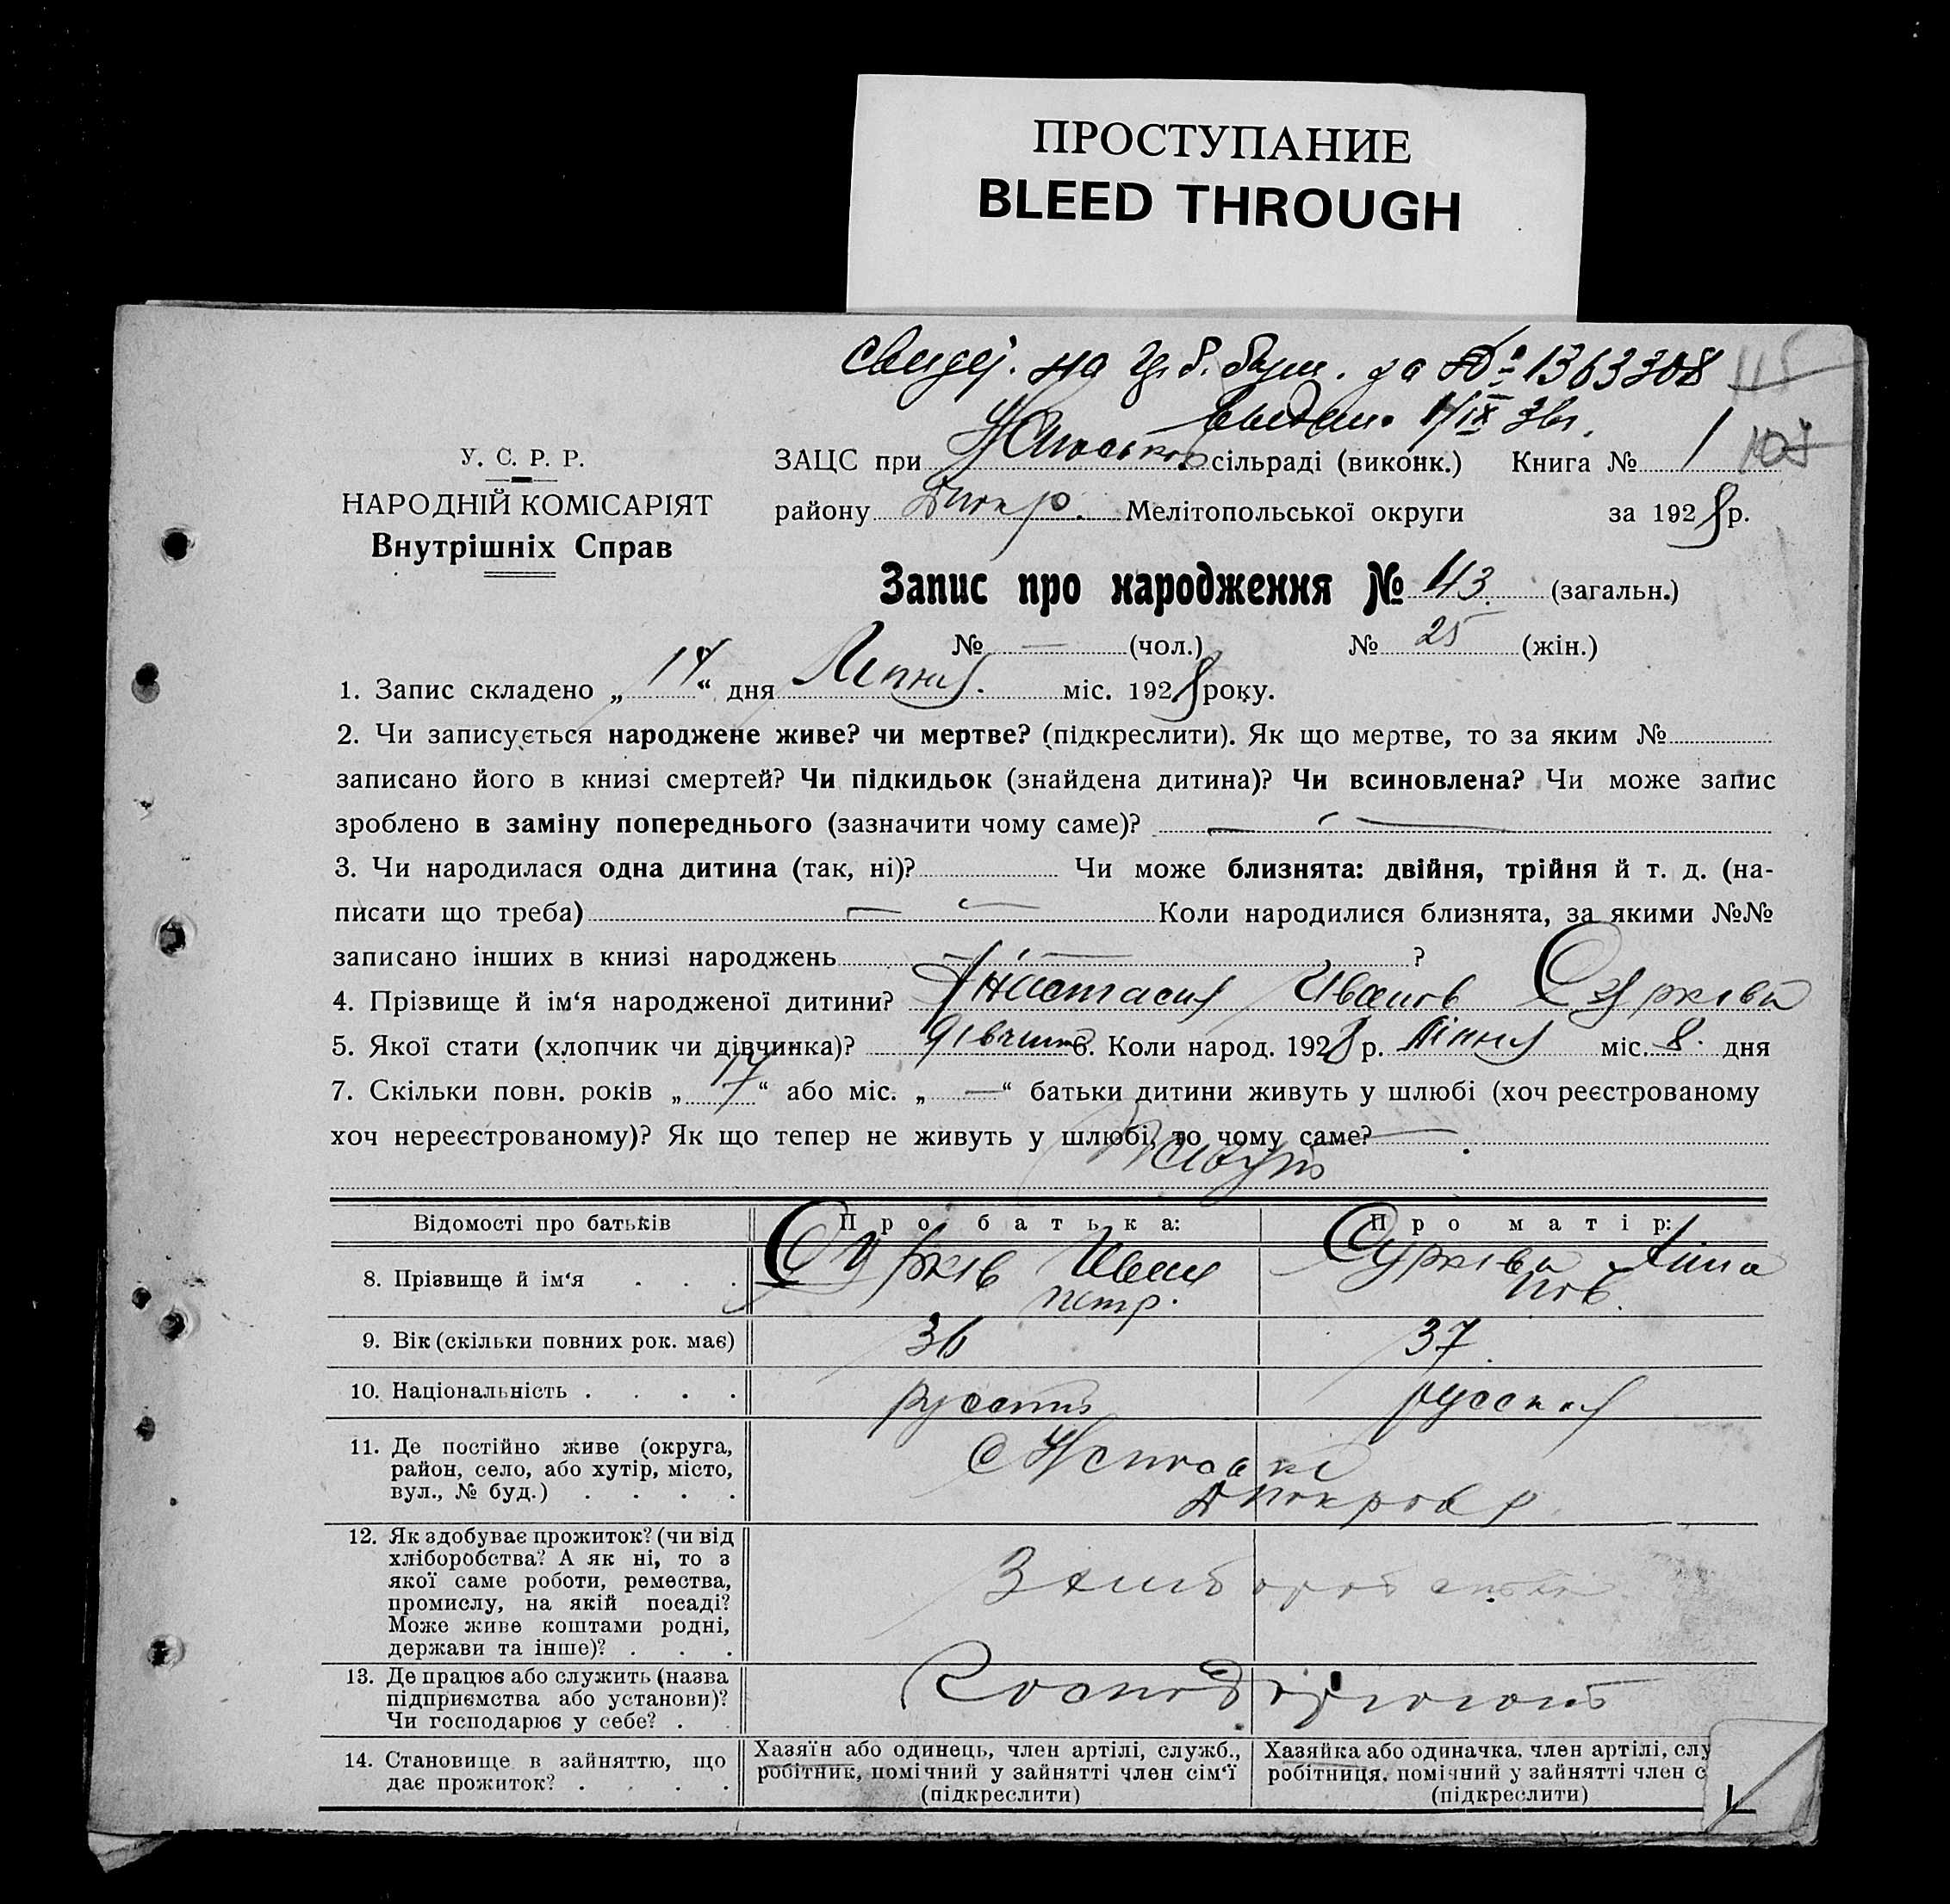 ПРОСТУПАНИЕ
BLEED THROUGH
на за № 1363308 115
1/IX
У. С. Р. Р.
НАРОДНІЙ КОМІСАРІЯТ
Внутрішніх Справ
ЗАЦС при сільраді (виконк.) Книга № 1
району Мелітопольської округи за 1928 р.
Запис про народження № 43. (загальн.)
№ — (чол.) № 25 (жін.)
1. Запис складено „ “ дня Липня. міс. 1928 року.
2. Чи записується народжене живе? чи мертве? (підкреслити). Як що мертве, то за яким №
записано його в книзі смертей? Чи підкидьок (знайдена дитина)? Чи всиновлена? Чи може запис
зроблено в заміну попереднього (зазначити чому саме)? —
3. Чи народилася одна дитина (так, ні)? Чи може близнята: двійня, трійня й т. д. (на-
писати що треба) — Коли народилися близнята, за якими №№
записано інших в книзі народжень — ?
4. Прізвище й ім‘я народженої дитини? Анастасия Иванов Суркова
5. Якої стати (хлопчик чи дівчинка)? дівчина 6. Коли народ. 1928 р. Липня міс. 8. дня
7. Скільки повн. років „ 17 “ або міс. „ — “ батьки дитини живуть у шлюбі (хоч реєстрованому
хоч нереєстрованому)? Як що тепер не живуть у шлюбі, то чому саме? —
Живуть
Відомості про батьків Про батька: Про матір:
8. Прізвище й ім‘я . . . Сурків Иван Петр. Сурківа Анна
9. Вік (скільки повних рок. має) 36 37
10. Національність . . . . русский русская
11. Де постійно живе (округа,
район, село, або хутір, місто,
вул., № буд.) . . . .
12. Як здобуває прожиток? (чи від
хліборобства? А як ні, то з
якої саме роботи, ремества,
промислу, на якій посаді?
Може живе коштами родні,
держави та інше)? . . .
13. Де працює або служить (назва
підприємства або установи)?
Чи господарює у себе? .
14. Становище в зайняттю, що
дає прожиток? . . . .
Хазяїн або одинець, член артілі, служб.,
робітник, помічний у зайнятті член сім‘ї
(підкреслити)
Хазяйка або одиначка, член артілі, слу
робітниця, помічний у зайнятті член с
(підкреслити)